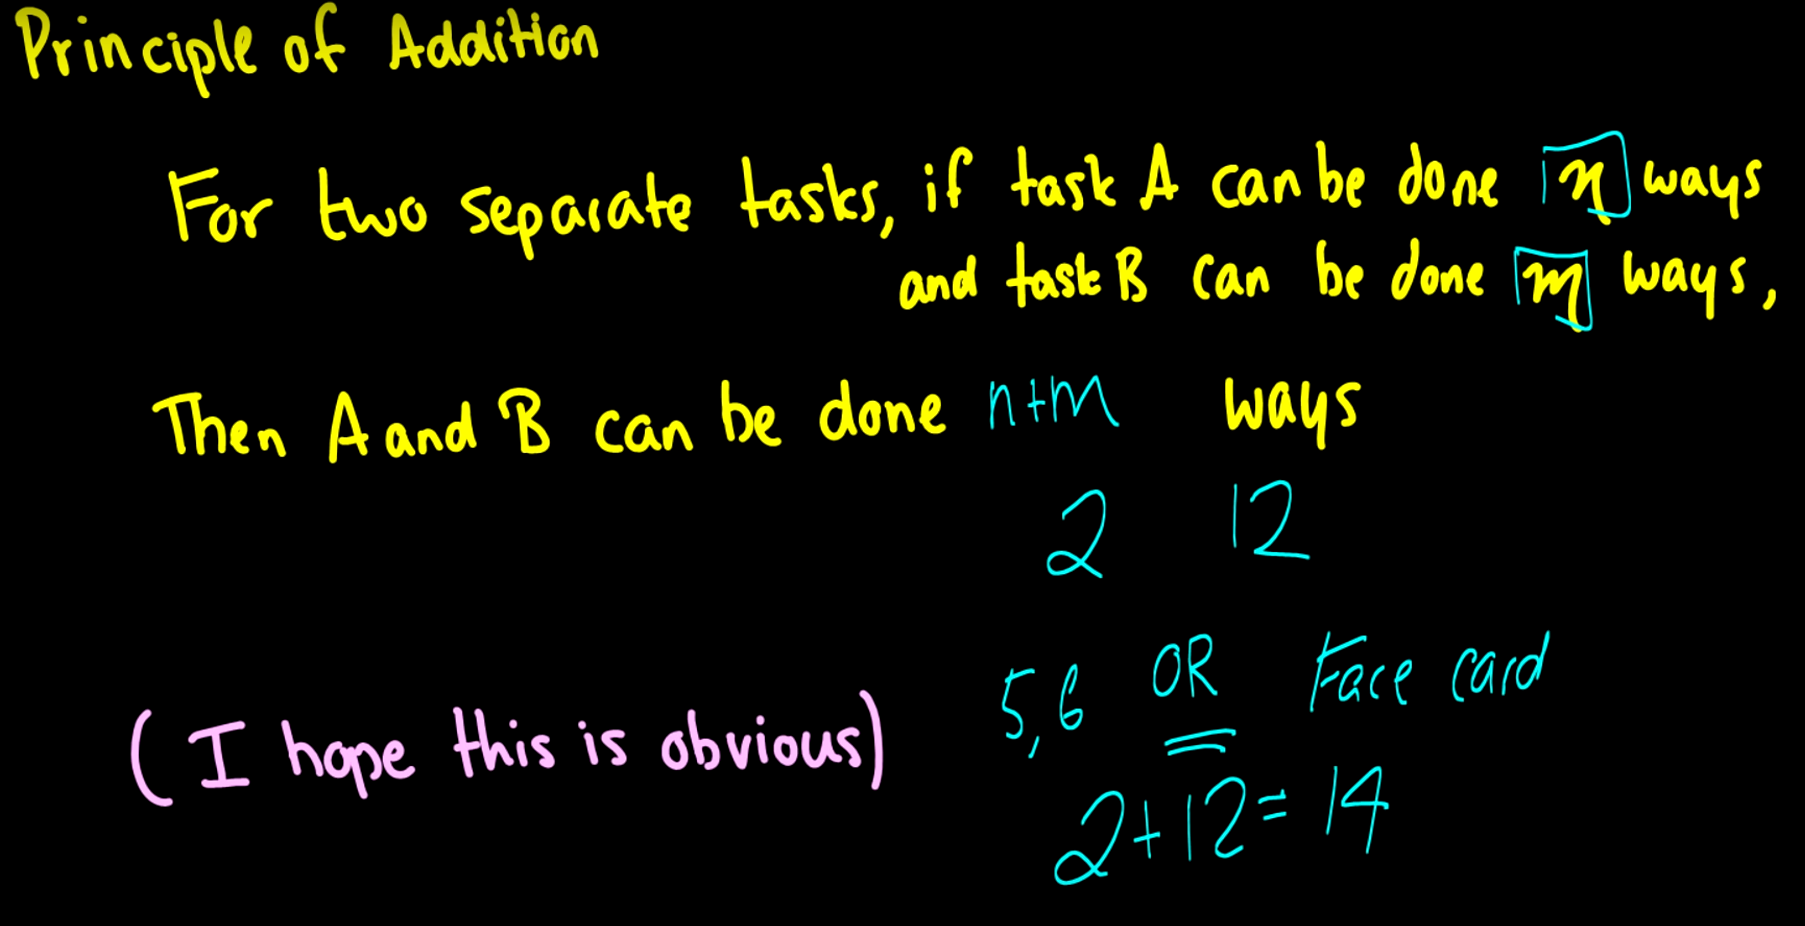 Principle of Addition
For two separate tasks, if task A can be done n ways
and task B can be done m ways,
Then A and B can be done n+m ways
2 12
5,6 OR Face card
(I hope this is obvious)
2+12=14